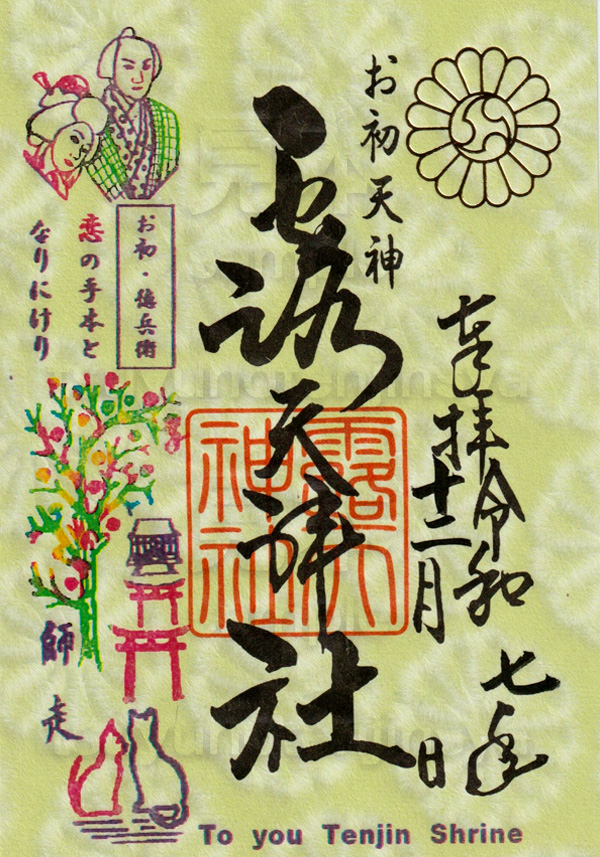 奉拝
令和七年
十二月 日
お初天神
露天神社
露天
神社
お初・徳兵衛
恋の手本と
なりにけり
師走
To you Tenjin Shrine
見本
sample